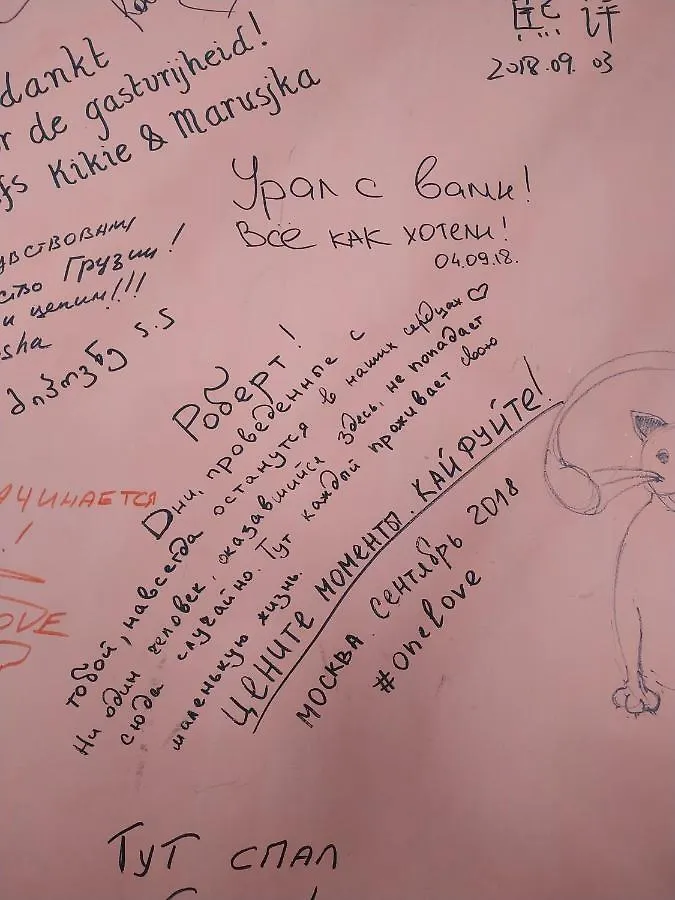 dankt
r de gastvrijheid!
fs Kikie & Marusjka
2018.09.03
Урал с вами!
Всё как хотели!
04.09.18.
увствовали
ство Грузии!
и ценим!!!
sha
Роберт!
Дни, проведенные с
тобой, навсегда останутся в наших сердцах ♡
Ни один человек, оказавшийся здесь, не попадает
сюда случайно. Тут каждый проживает свою
маленькую жизнь.
ЦЕНИТЕ МОМЕНТЫ. КАЙФУЙТЕ!
МОСКВА. СЕНТЯБРЬ 2018
#onelove
АЧИНАЕТСЯ
!
OVE
ТУТ СПАЛ